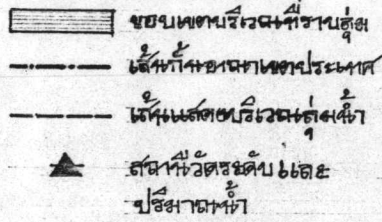 ขอบเขตบริเวณที่ราบลุ่ม
เส้นกั้นอาณาเขตประเทศ
เส้นแสดงบริเวณลุ่มน้ำ
สถานีวัดระดับและ
ปริมาณน้ำ